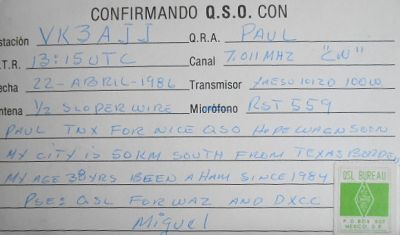 CONFIRMANDO Q.S.O. CON
stación VK3AJJ Q.R.A. PAUL
.T.R. 13:15 UTC Canal 7.011 MHZ "CW"
echa 22-ABRIL-1986 Transmisor YAESU 101ZD 100W
ntena 1/2 SLOPER WIRE Micrófono RST 559
PAUL TNX FOR NICE QSO HOPE WAGN SOON
MY CITY IS 50KM SOUTH FROM TEXAS BORDER
MY AGE 38YRS IBEEN A HAM SINCE 1984
PSE: QSL FOR WAZ AND DXCC
Miguel
QSL BUREAU
P.O. BOX 907
MEXICO, D.F.